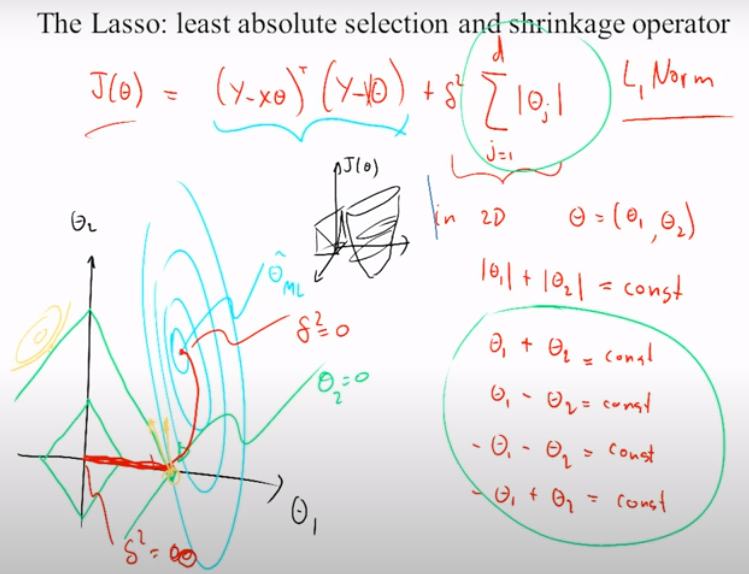 The Lasso: least absolute selection and shrinkage operator
J(θ) = (Y-Xθ)ᵀ (Y-Xθ) + δ² ∑ |θⱼ| L₁ Norm
d
j=1
J(θ)
in 2D θ = (θ₁, θ₂)
θ₂
θ̂ML
|θ₁| + |θ₂| = const
δ²=0
θ₁ + θ₂ = const
θ₂=0
θ₁ - θ₂ = const
- θ₁ - θ₂ = const
- θ₁ + θ₂ = const
θ₁
δ² = ∞